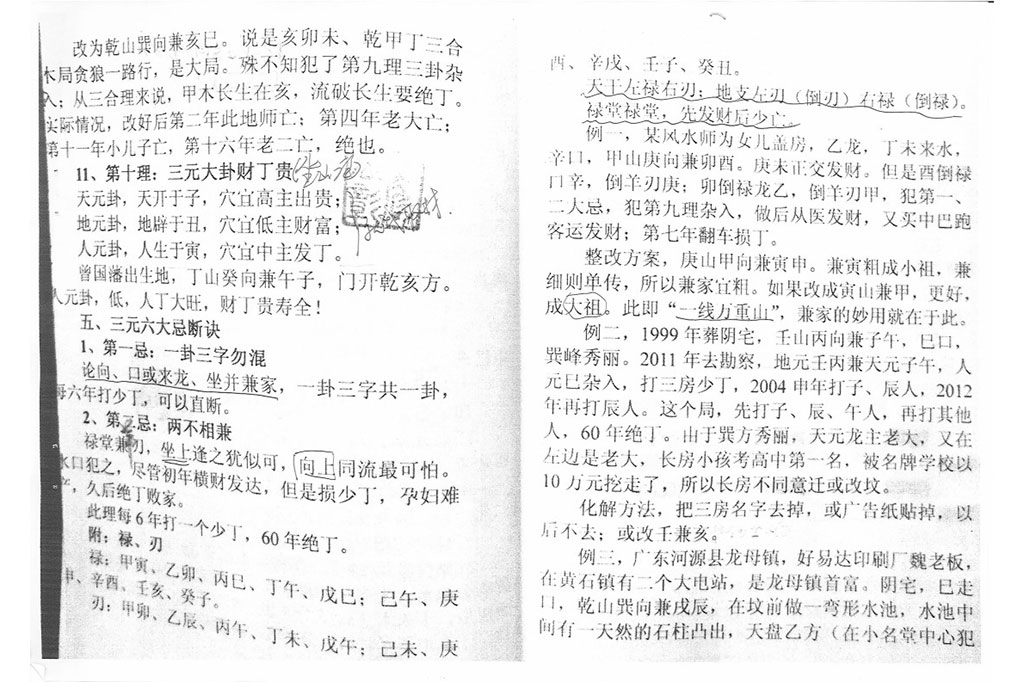 改为乾山巽向兼亥巳。说是亥卯未、乾甲丁三合
木局贪狼一路行，是大局。殊不知犯了第九理三卦杂
入；从三合理来说，甲木长生在亥，流破长生要绝丁。
实际情况，改好后第二年此地师亡；第四年老大亡；
第十一年小儿子亡，第十六年老二亡，绝也。
11、第十理：三元大卦财丁贵
天元卦，天开于子，穴宜高主出贵；
地元卦，地辟于丑，穴宜低主财富；
人元卦，人生于寅，穴宜中主发丁。
曾国藩出生地，丁山癸向兼午子，门开乾亥方。
人元卦，低，人丁大旺，财丁贵寿全！
五、三元六大忌断诀
1、第一忌：一卦三字勿混
论向、口或来龙、坐并兼家，一卦三字共一卦，
每六年打少丁，可以直断。
2、第二忌：两不相兼
禄堂兼刃，坐上逢之犹似可，向上同流最可怕。
水口犯之，尽管初年横财发达，但是损少丁，孕妇难
产，久后绝丁败家。
此理每6年打一个少丁，60年绝丁。
附：禄、刃
禄：甲寅、乙卯、丙巳、丁午、戊巳；己午、庚
申、辛酉、壬亥、癸子。
刃：甲卯、乙辰、丙午、丁未、戊午；己未、庚
酉、辛戌、壬子、癸丑。
天干左禄右刃；地支左刃（倒刃）右禄（倒禄）。
禄堂禄堂，先发财后少亡。
例一，某风水师为女儿盖房，乙龙，丁未来水，
辛口，甲山庚向兼卯酉。庚未正交发财。但是酉倒禄
口辛，倒羊刃庚；卯倒禄龙乙，倒羊刃甲，犯第一、
二大忌，犯第九理杂入，做后从医发财，又买中巴跑
客运发财；第七年翻车损丁。
整改方案，庚山甲向兼寅申。兼寅粗成小祖，兼
细则单传，所以兼家宜粗。如果改成寅山兼甲，更好，
成大祖。此即“一线万重山”，兼家的妙用就在于此。
例二，1999年葬阴宅，壬山丙向兼子午，巳口，
巽峰秀丽。2011年去勘察，地元壬丙兼天元子午，人
元巳杂入，打三房少丁，2004申年打子、辰人，2012
年再打辰人。这个局，先打子、辰、午人，再打其他
人，60年绝丁。由于巽方秀丽，天元龙主老大，又在
左边是老大，长房小孩考高中第一名，被名牌学校以
10万元挖走了，所以长房不同意迁或改坟。
化解方法，把三房名字去掉，或广告纸贴掉，以
后不去；或改壬兼亥。
例三，广东河源县龙母镇，好易达印刷厂魏老板，
在黄石镇有二个大电站，是龙母镇首富。阴宅，巳走
口，乾山巽向兼戌辰，在坟前做一弯形水池，水池中
间有一天然的石柱凸出，天盘乙方（在小名堂中心犯